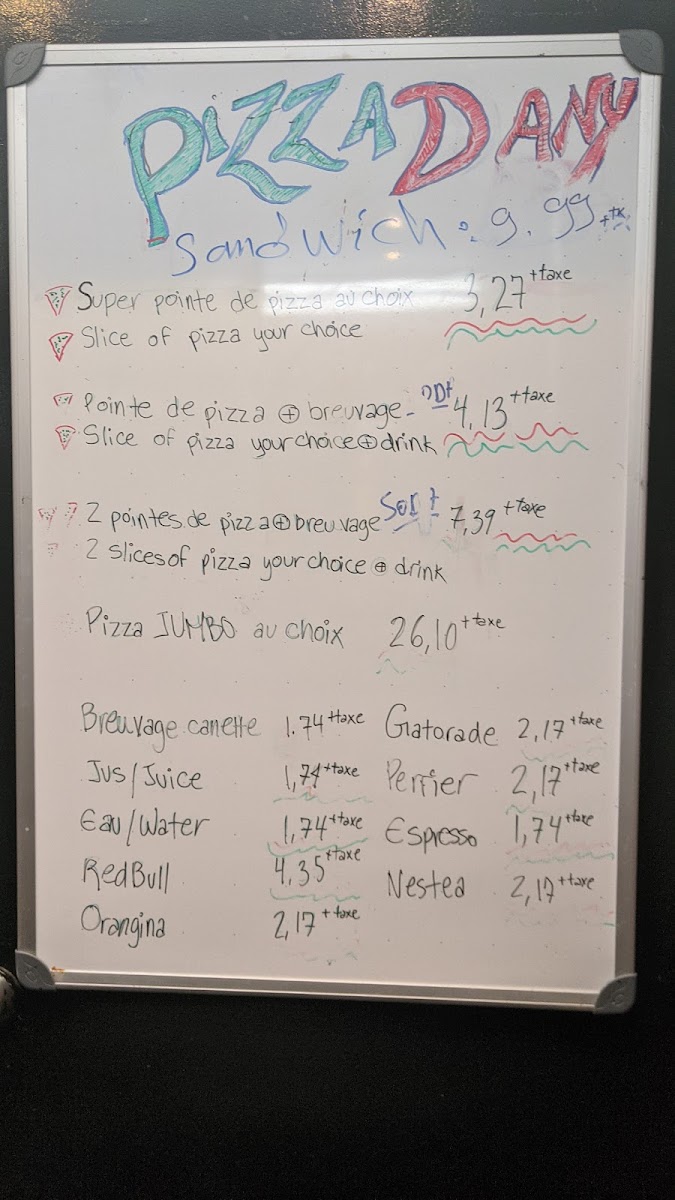 PIZZA DANY
Sandwich : 9.99 +tx.
Super pointe de pizza au choix 3,27 +taxe
Slice of pizza your choice
Pointe de pizza ⊕ breuvage - 4,13 +taxe
Slice of pizza your choice ⊕ drink
2 pointes de pizza ⊕ breuvage 7,39 +taxe
2 slices of pizza your choice ⊕ drink
Pizza JUMBO au choix 26,10 +taxe
Breuvage canette 1.74 +taxe Gatorade 2,17 +taxe
Jus/Juice 1,74 +taxe Perrier 2,17 +taxe
Eau/Water 1,74 +taxe Espresso 1,74 +taxe
RedBull 4,35 +taxe Nestea 2,17 +taxe
Orangina 2,17 +taxe